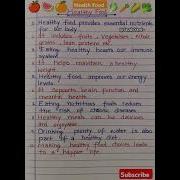 Health Food
Healthy Food
Healthy food provides essential nutrients
for our body
It includes fruits, vegetables, whole
grains, lean proteins etc.
Eating healthy boosts our immune
system.
It helps maintain a healthy
weight.
Healthy food improves our energy
levels.
It supports brain function
and mental health.
Eating nutritious foods reduces
the risk of chronic diseases.
Healthy meals can be delicious
and enjoyable.
Drinking plenty of water is also
part of a healthy diet.
Making healthy food choices leads
to a happier life.
Subscribe